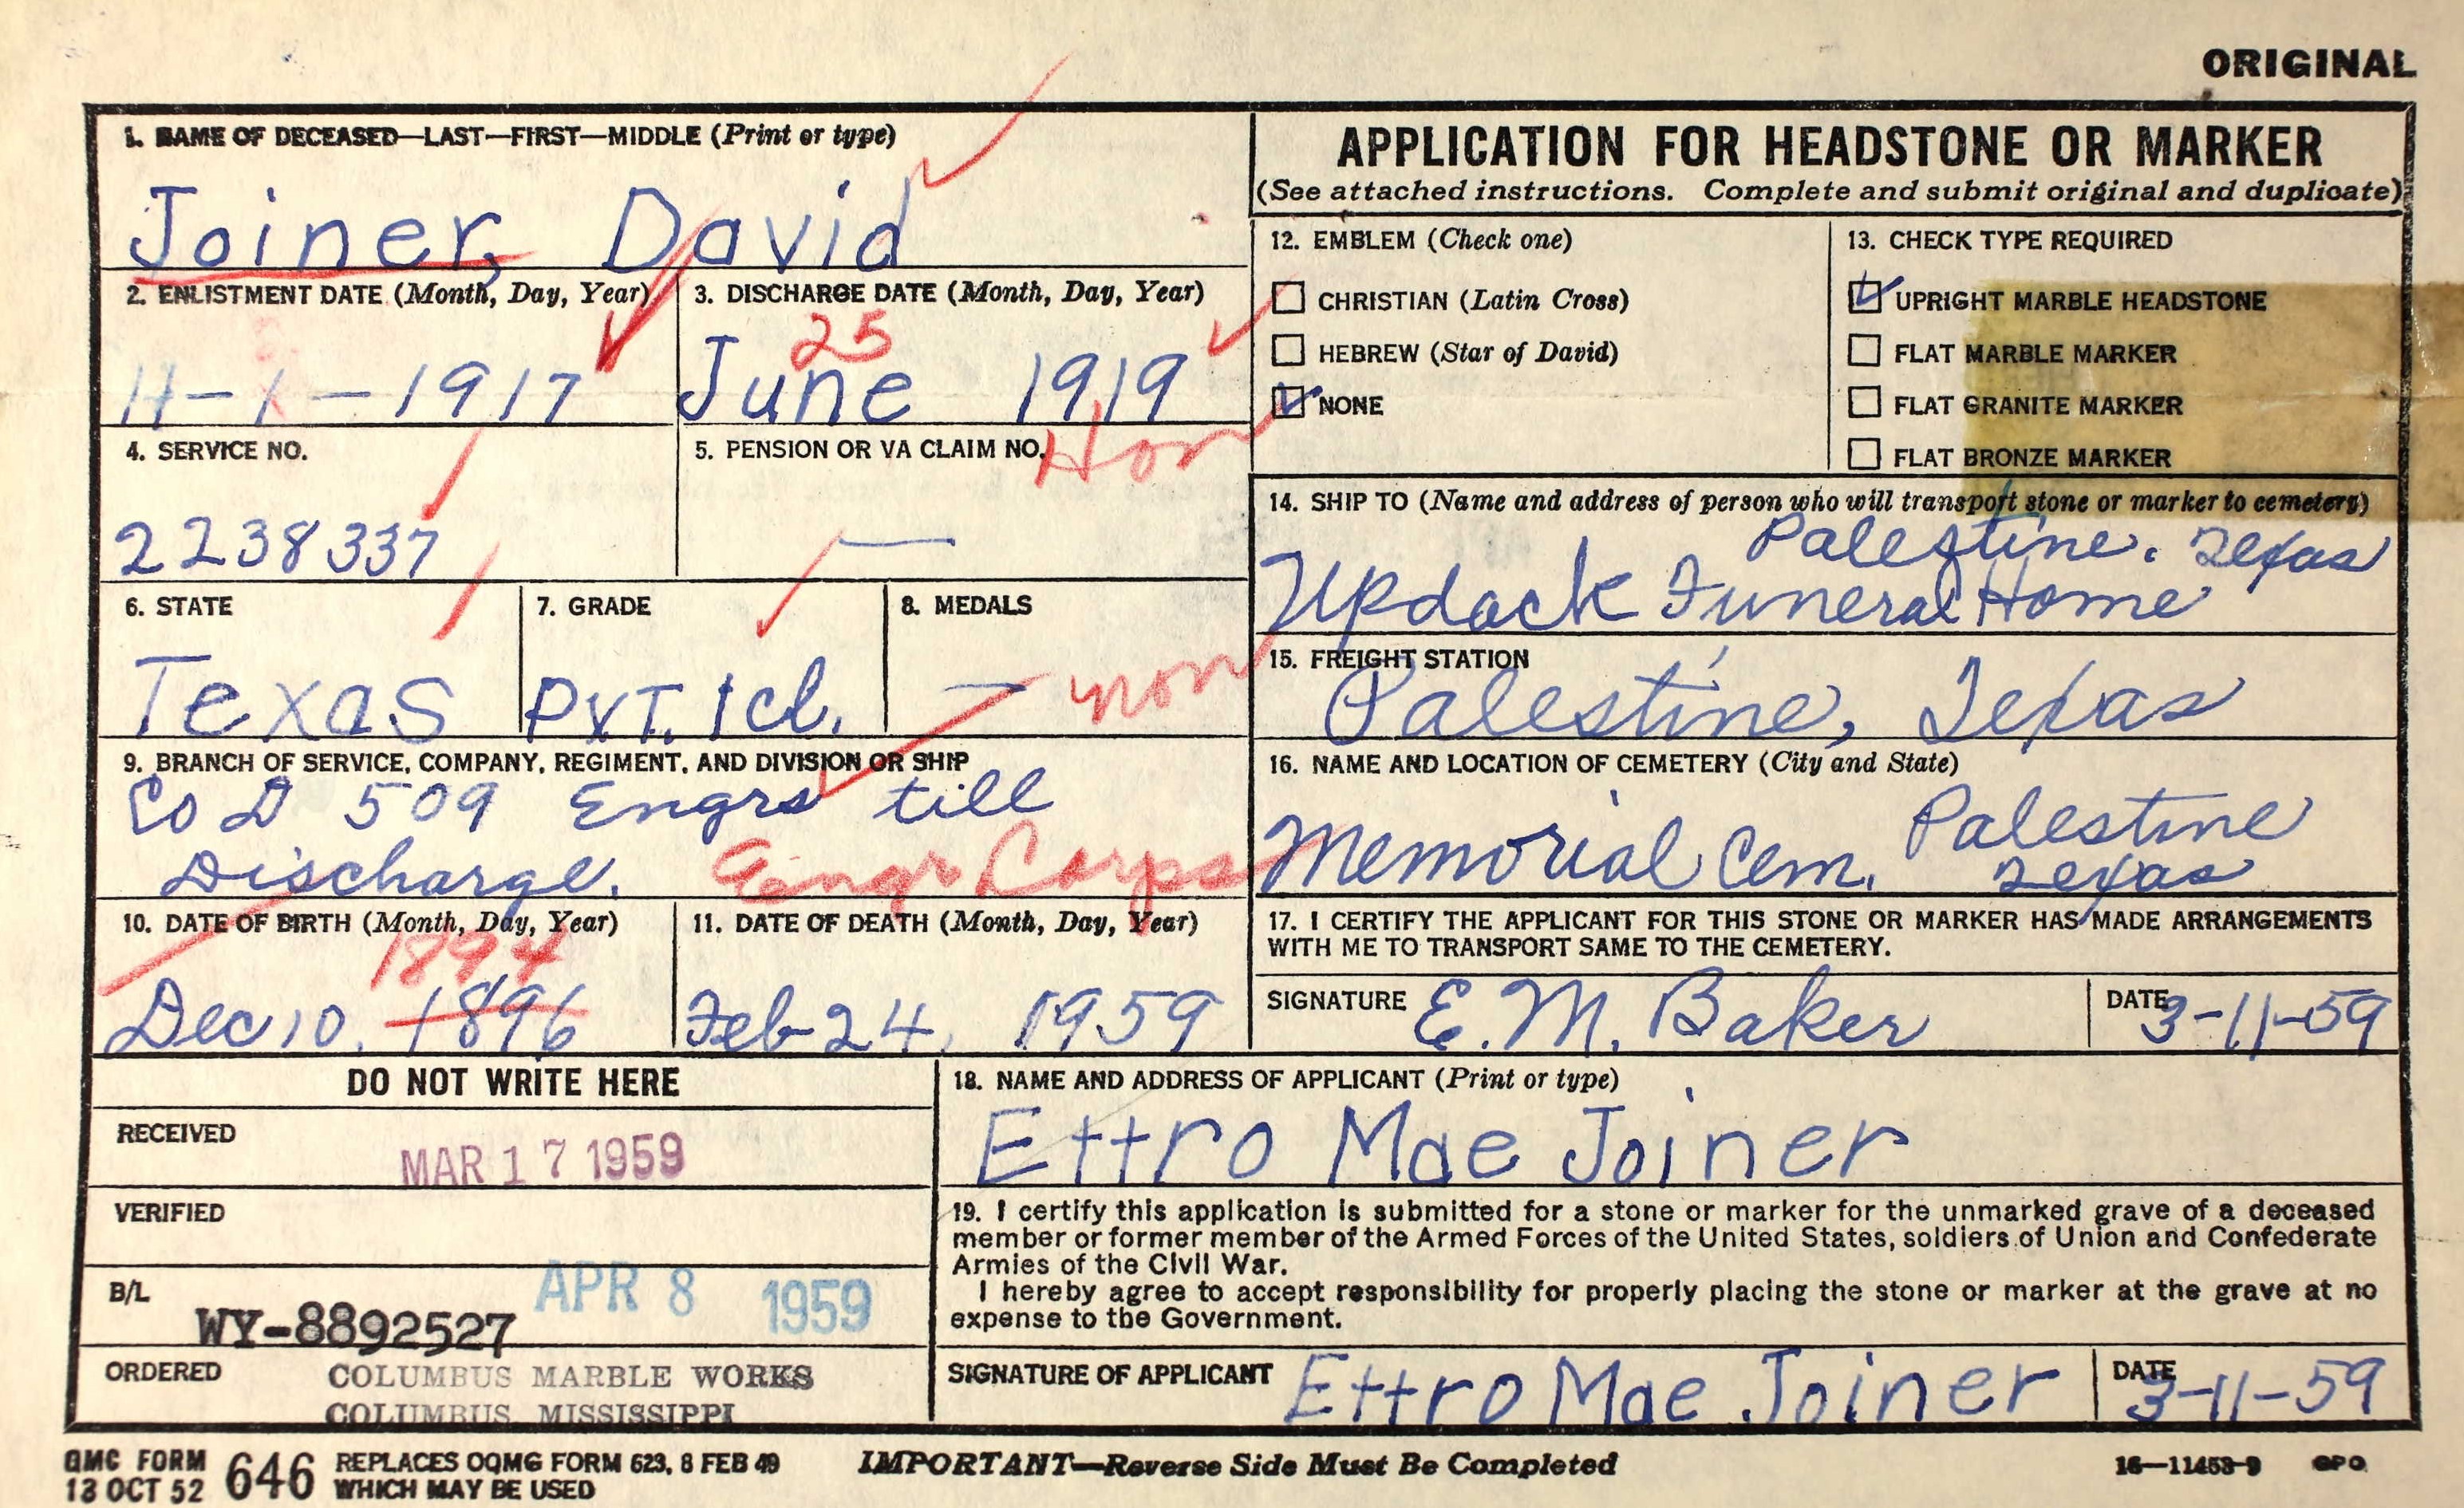 ORIGINAL
1. NAME OF DECEASED—LAST—FIRST—MIDDLE (Print or type)
Joiner, David
2. ENLISTMENT DATE (Month, Day, Year)
11-1-1917
3. DISCHARGE DATE (Month, Day, Year)
25
June 1919
4. SERVICE NO.
2238337
5. PENSION OR VA CLAIM NO.
Hon
—
6. STATE
Texas
7. GRADE
PVT. 1cl.
8. MEDALS
— non
9. BRANCH OF SERVICE, COMPANY, REGIMENT, AND DIVISION OR SHIP
Co D 509 Engrs till
Discharge. Engr Corps
10. DATE OF BIRTH (Month, Day, Year)
1894
Dec 10, 1896
11. DATE OF DEATH (Month, Day, Year)
Feb 24, 1959
APPLICATION FOR HEADSTONE OR MARKER
(See attached instructions. Complete and submit original and duplicate)
12. EMBLEM (Check one)
CHRISTIAN (Latin Cross)
HEBREW (Star of David)
NONE
13. CHECK TYPE REQUIRED
UPRIGHT MARBLE HEADSTONE
FLAT MARBLE MARKER
FLAT GRANITE MARKER
FLAT BRONZE MARKER
14. SHIP TO (Name and address of person who will transport stone or marker to cemetery)
Palestine, Texas
Updack Funeral Home
15. FREIGHT STATION
Palestine, Texas
16. NAME AND LOCATION OF CEMETERY (City and State)
Memorial Cem. Palestine
Texas
17. I CERTIFY THE APPLICANT FOR THIS STONE OR MARKER HAS MADE ARRANGEMENTS
WITH ME TO TRANSPORT SAME TO THE CEMETERY.
SIGNATURE E. M. Baker
DATE 3-11-59
DO NOT WRITE HERE
RECEIVED
MAR 17 1959
VERIFIED
B/L
APR 8 1959
WY-8892527
ORDERED COLUMBUS MARBLE WORKS
COLUMBUS, MISSISSIPPI
18. NAME AND ADDRESS OF APPLICANT (Print or type)
Ettro Mae Joiner
19. I certify this application is submitted for a stone or marker for the unmarked grave of a deceased
member or former member of the Armed Forces of the United States, soldiers of Union and Confederate
Armies of the Civil War.
I hereby agree to accept responsibility for properly placing the stone or marker at the grave at no
expense to the Government.
SIGNATURE OF APPLICANT Ettro Mae Joiner
DATE 3-11-59
QMC FORM
13 OCT 52 646 REPLACES OQMG FORM 623, 8 FEB 49
WHICH MAY BE USED
IMPORTANT—Reverse Side Must Be Completed
16—11453-9 GPO